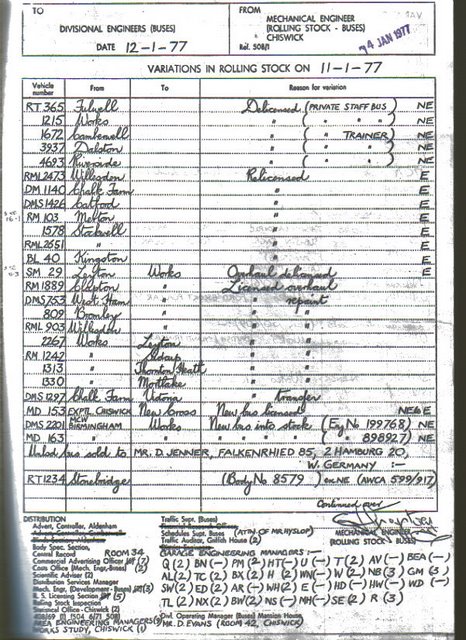 TO
DIVISIONAL ENGINEERS (BUSES)
DATE 12-1-77
FROM
MECHANICAL ENGINEER
(ROLLING STOCK - BUSES)
CHISWICK
Ref. 508/1
14 JAN 1977
VARIATIONS IN ROLLING STOCK ON 11-1-77
Vehicle number From To Reason for variation
RT 365 Fulwell Delicensed (PRIVATE STAFF BUS) NE
1215 Works " ( " " " ) NE
1672 Camberwell " ( " TRAINER) NE
3937 Dalston " ( " " ) NE
4693 Riverside " ( " " ) NE
RML 2473 Willesden Relicensed E
DM 1140 Chalk Farm " E
DMS 1426 Catford " E
RM 103 Merton " E
1578 Stockwell " E
RML 2651 " " E
BL 40 Kingston " E
SM 29 Leyton Works Overhaul delicensed E
RM 1889 Clapton " Licensed overhaul
DMS 753 West Ham " " repaint
809 Bromley " " "
RML 903 Willesden " " "
2267 Works Leyton " "
RM 1242 " Sidcup " "
1313 " Thornton Heath " "
1330 " Mortlake " "
DMS 1297 Chalk Farm Victoria " transfer
MD 153 EXPTL. CHISWICK New Cross New bus licensed NE & E
DMS 2201 MCW BIRMINGHAM Works New bus into stock (Eng No 199768) NE
MD 163 " " " " " " ( " " 898927) NE
Unlicd. bus sold to MR. D. JENNER, FALKENRHIED 85, 2 HAMBURG 20,
W. GERMANY :-
RT 1234 Stonebridge (Body No 8579) ex NE (AWCA 599/917)
Continued over
MECHANICAL ENGINEER
(ROLLING STOCK - BUSES)
DISTRIBUTION
Advert, Controller, Aldenham
Body Spec. Section,
Central Record ROOM 34
Commercial Advertising Officer
Cons Office (Mech. Engr-Buses) (3)
Scientific Adviser (2)
Distribution Services Manager
Mech. Engr. (Development - Buses) (3)
R. S. Licensing Section (5)
Rolling Stock Inspection
Divisional Office - Chiswick (2)
AREA ENGINEERING MANAGERS (3)
WORKS STUDY, CHISWICK (1)
Traffic Supt. (Buses)
Schedules Supt. Buses (ATTN OF MR HYSLOP)
Traffic Auditor, Catlish House (2)
GARAGE ENGINEERING MANAGERS :-
Q (2) BN (-) PM (2) HT (-) U (-) T (2) AV (-) BEA (-)
AL (2) TC (2) BX (2) H (2) WN (-) N (2) NB (3) GM (3)
SW (2) ED (2) AR (-) WH (2) E (-) HD (-) HW (-) WD (-)
TL (2) NX (2) BW (2) NS (-) NH (-) SE (2) R (3)
Chief Operating Manager (Buses) Mansion House
MR. D. EVANS (ROOM 42, CHISWICK)